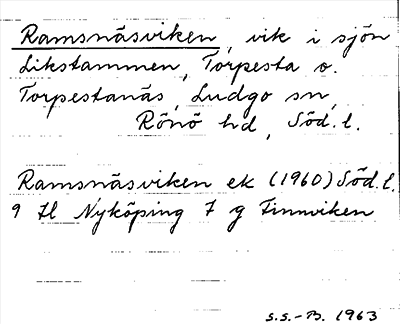 Ramsnäsviken, vik i sjön
Likstammen, Torpesta o.
Torpestanäs, Ludgo sn,
Rönö hd, Söd. l.
Ramsnäsviken ek (1960) Söd. l.
9 H Nyköping 7 g Finnviken
S.S.-B. 1963